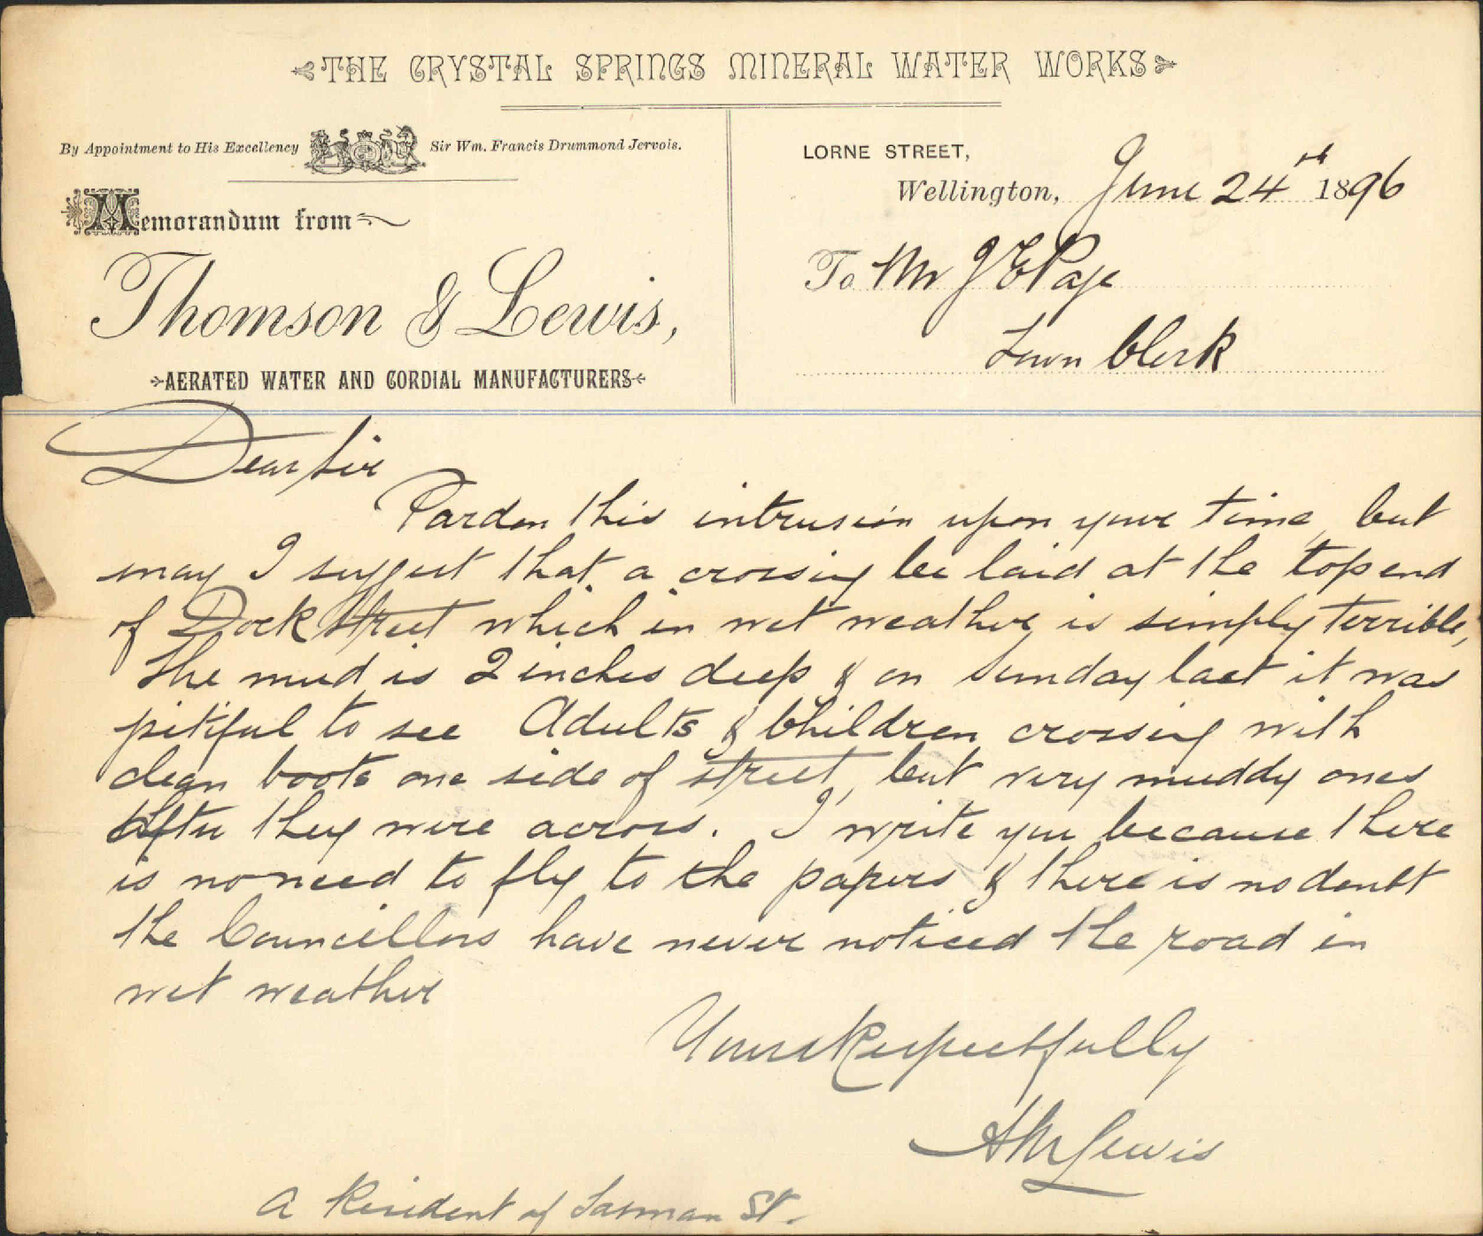 THE CRYSTAL SPRINGS MINERAL WATER WORKS
By Appointment to His Excellency Sir Wm. Francis Drummond Jervois.
Memorandum from
Thomson & Lewis,
AERATED WATER AND CORDIAL MANUFACTURERS
LORNE STREET,
Wellington, June 24th 1896
To Mr J E Page
Town Clerk
Dear Sir
Pardon this intrusion upon your time, but
may I suggest that a crossing be laid at the top end
of Dock Street which in wet weather is simply terrible,
the mud is 2 inches deep & on Sunday last it was
pitiful to see Adults & Children crossing with
clean boots one side of street, but very muddy ones
after they were across. I write you because there
is no need to fly to the papers & there is no doubt
the Councillors have never noticed the road in
wet weather
Yours Respectfully
Lewis
A Resident of Tasman St.